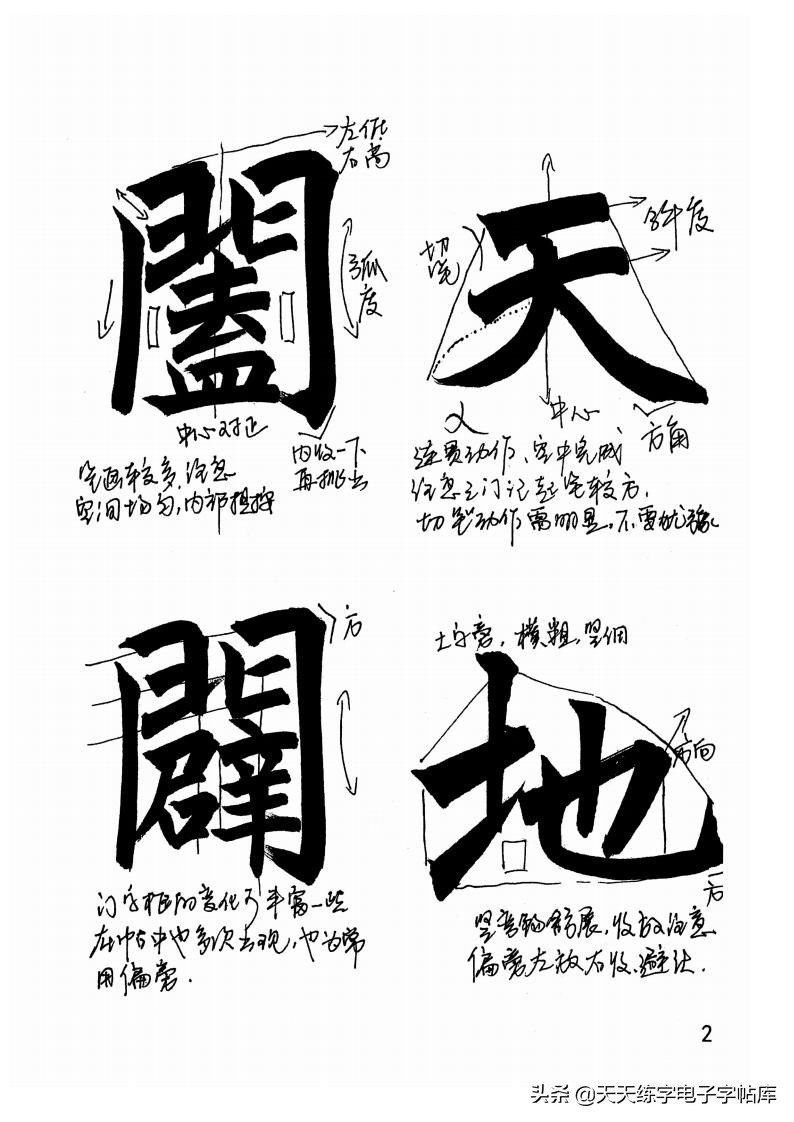 左低
右高
闔
弧
度
中心对正
内收一下
再挑出
笔画较多,注意
空间均匀,内部提按
天
切
笔
斜度
中心
方角
连贯动作、空中完成
注意之门记起笔较方,
切笔动作需明显,不要犹豫
方
闢
门字框的变化可丰富一些
在帖中也多次出现,也为常
用偏旁.
土字旁,横粗,竖细
地
方向
方
竖弯钩舒展,收放注意
偏旁左放右收、避让.
2
头条 @天天练字电子字帖库